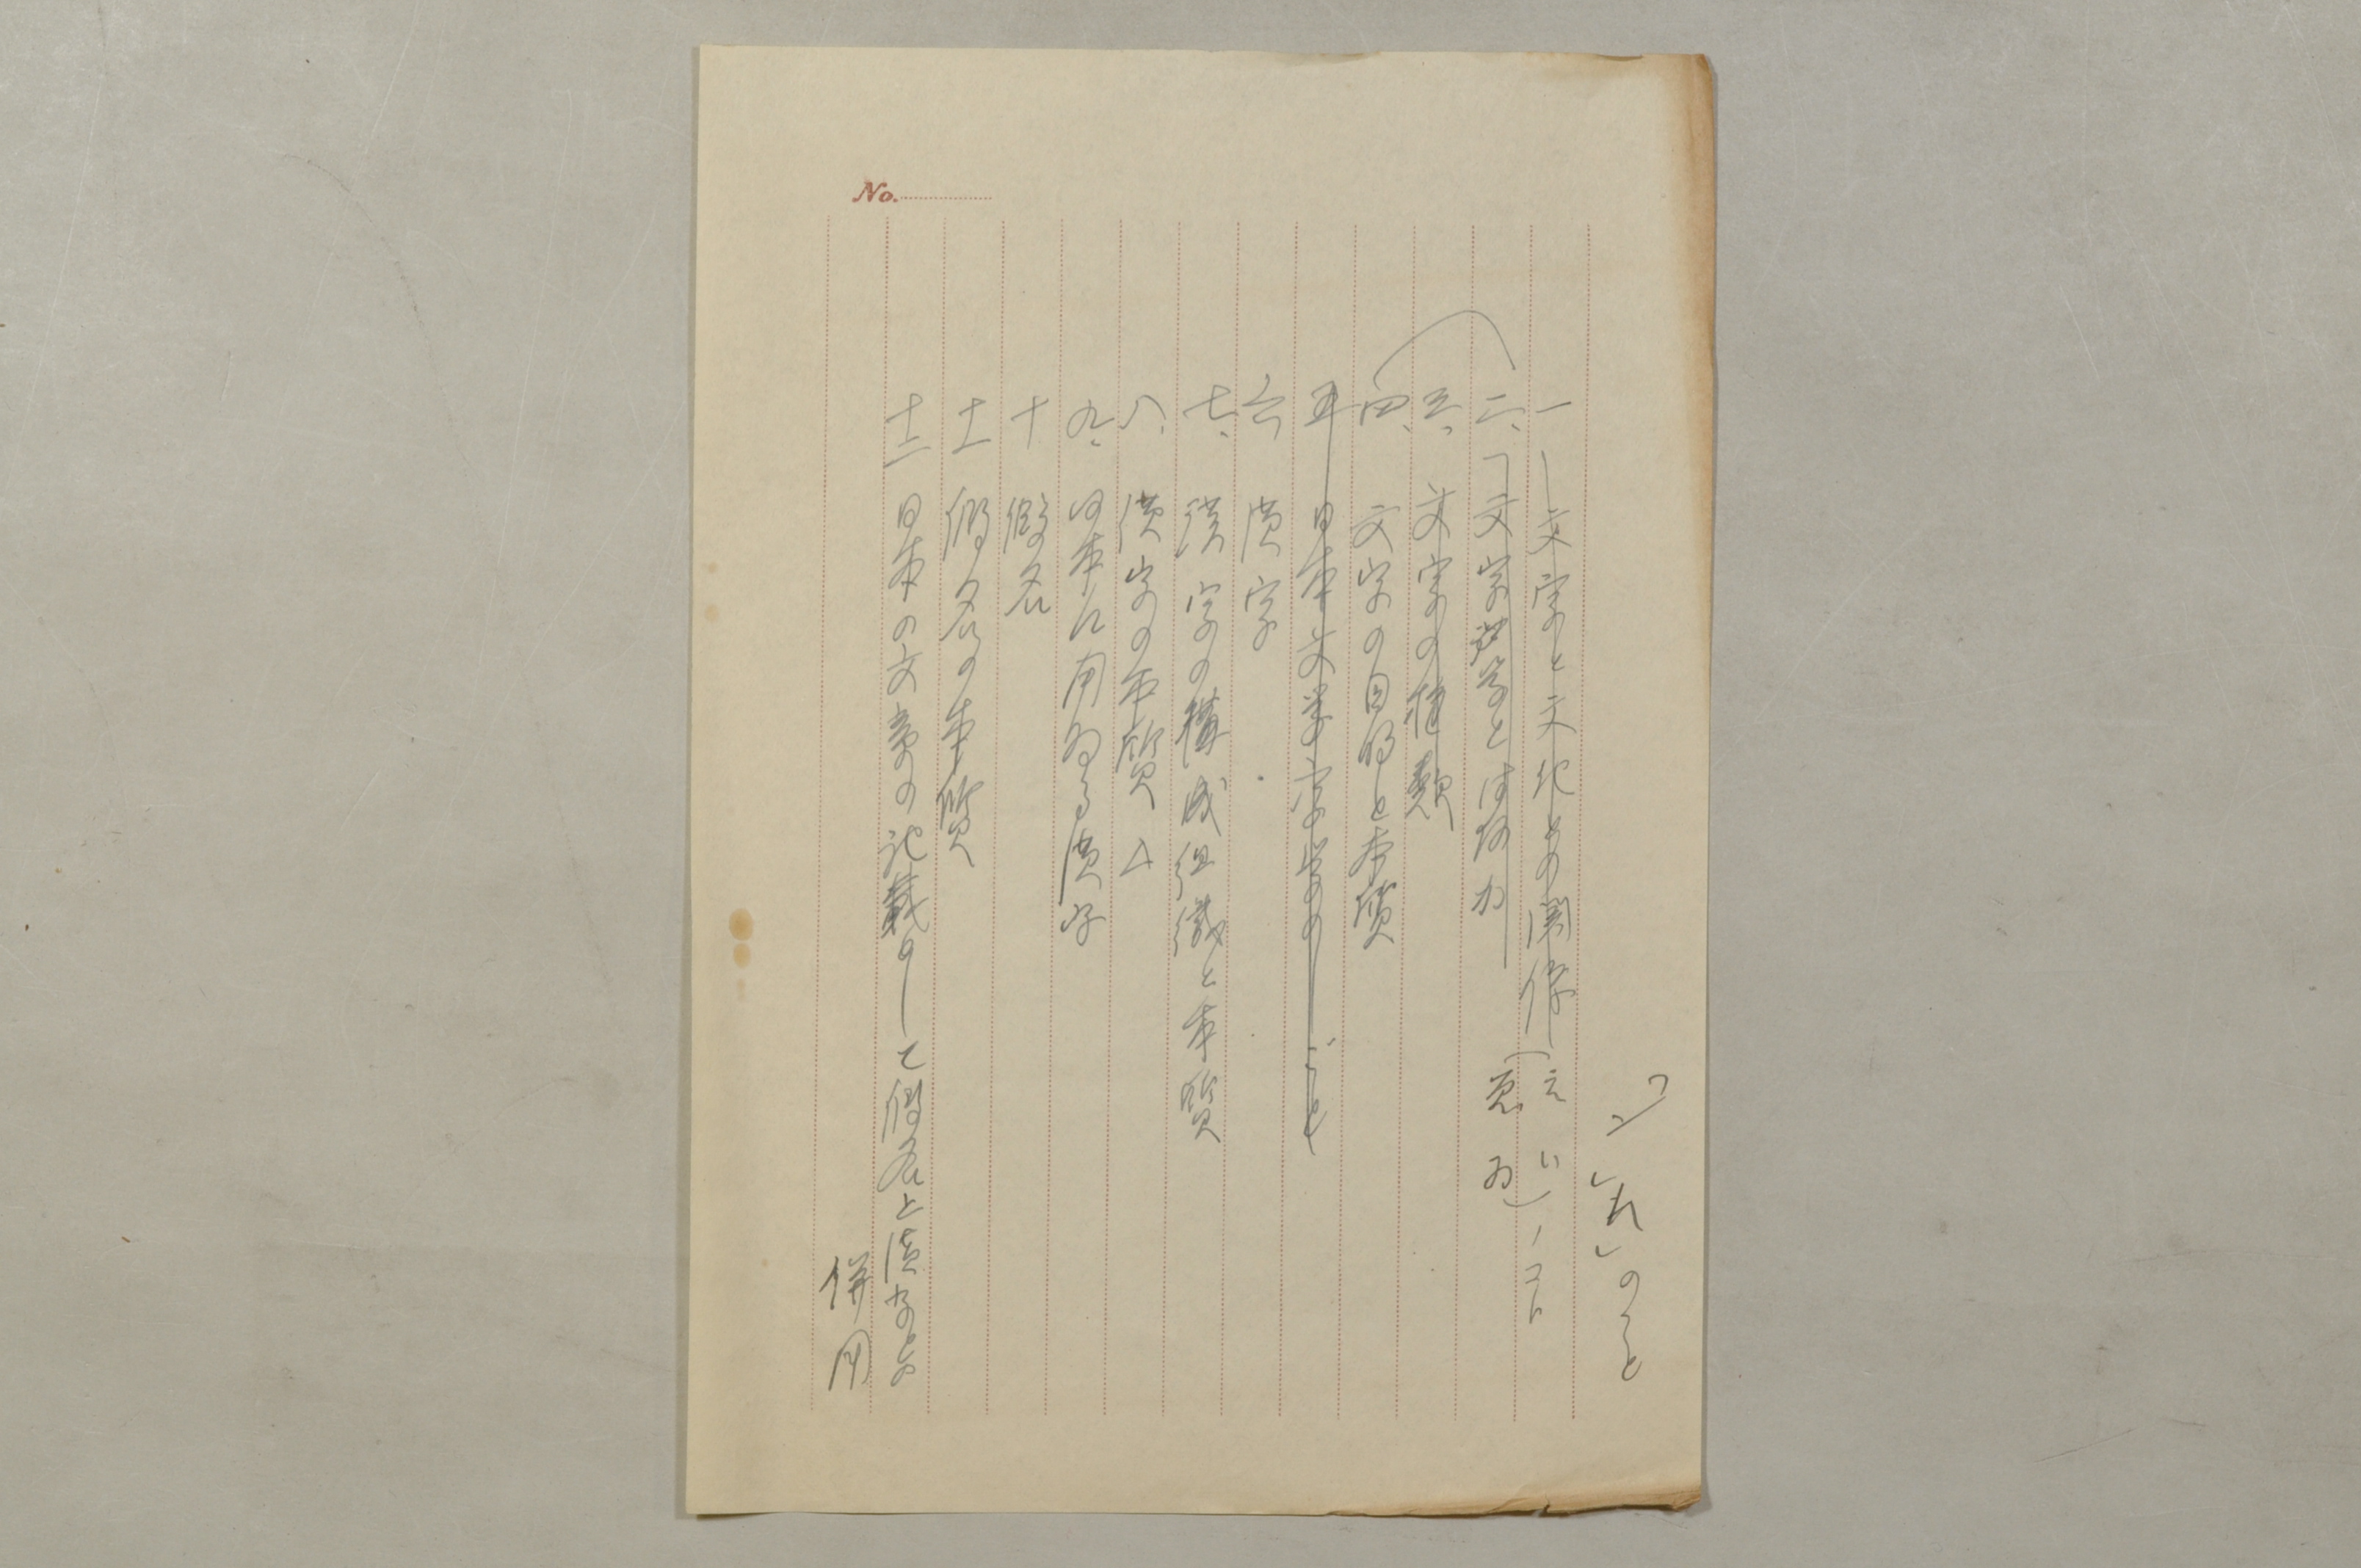 No.
「れ」のこと
一 文字と文化との関係
二、文字学とは何か
三、文字の種類
四、文字の目的と本質
五 日本文字学のこと
六 漢字
七、漢字の構成組織と本質
八、漢字の本質
九、日本に用ゐる漢字
十 假名
十一 假名の本質
十二 日本の文章の記載 として假名と漢字との
併用